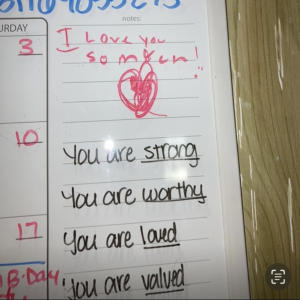 URDAY
notes:
3
I Love you
so much!
10
You are strong
You are worthy
17
You are loved
B-Day
you are valued